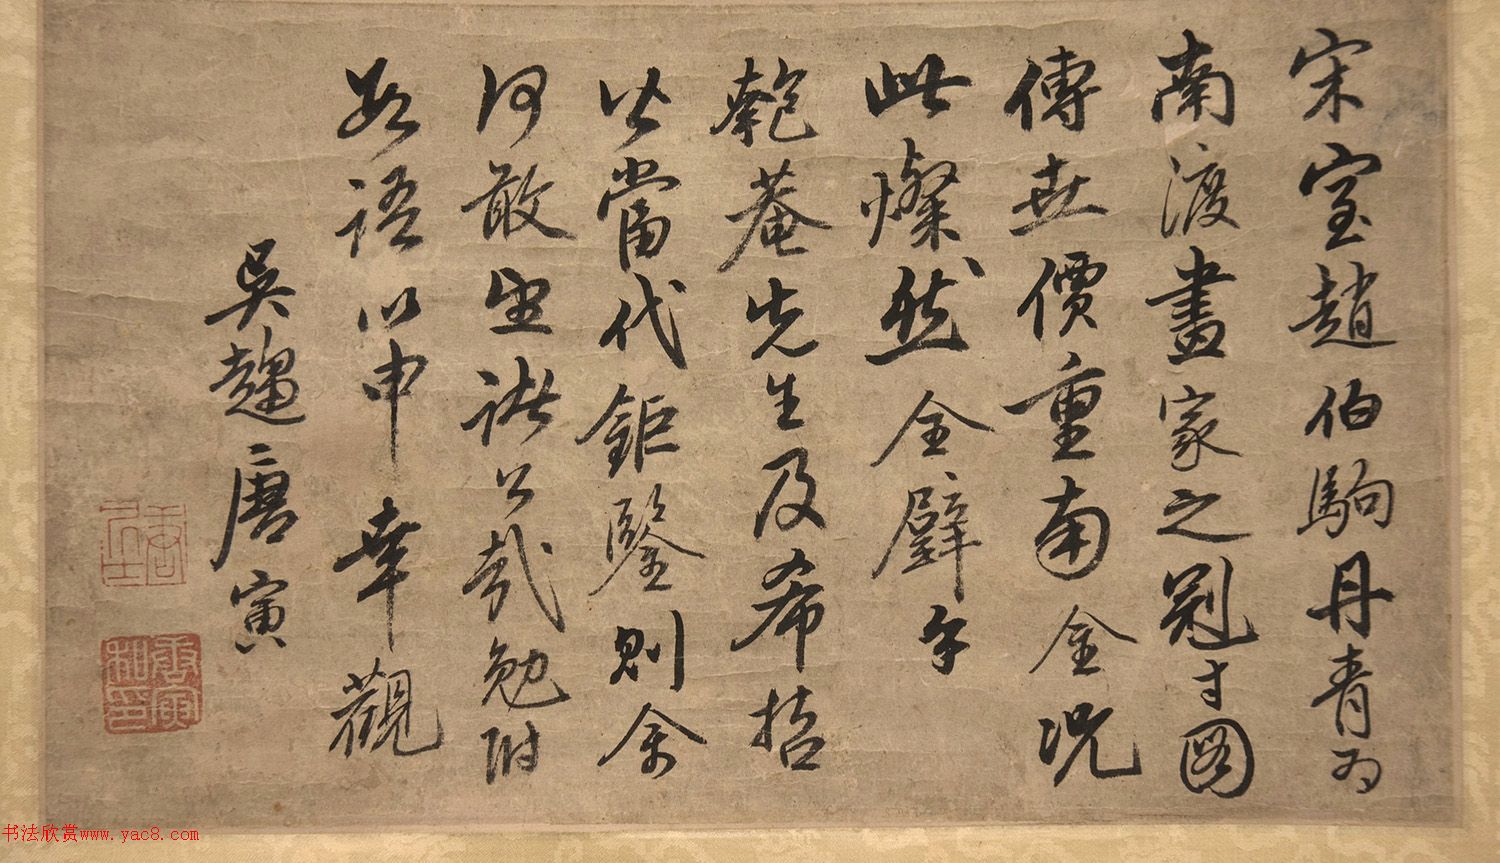 宋室趙伯駒丹青為
南渡畫家之冠寸圖
傳世價重南金况
此燦然全璧乎
匏菴先生及希哲
皆當代鉅鑒則余
何敢望諸公哉勉附
數語以申幸觀
吳趨唐寅
唐寅
書法欣賞www.yac8.com